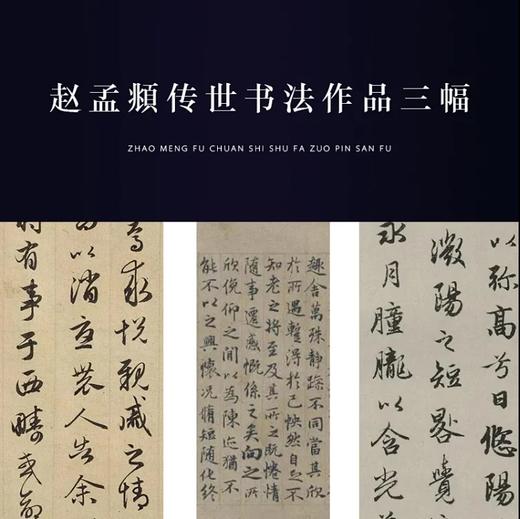 赵孟頫传世书法作品三幅
ZHAO MENG FU CHUAN SHI SHU FA ZUO PIN SAN FU
焉求悦親戚之情
以消憂農人告余
有事于西疇或命
趣舍萬殊静躁不同當其欣
於所遇蹔得於己怏然自足不
知老之將至及其所之既惓情
隨事遷感慨係之矣向之所
欣俛仰之間以為陳迹猶不
能不以之興懷況脩短隨化終
以弥高兮日悠陽
微陽之短晷覺
永月朣朧以含光